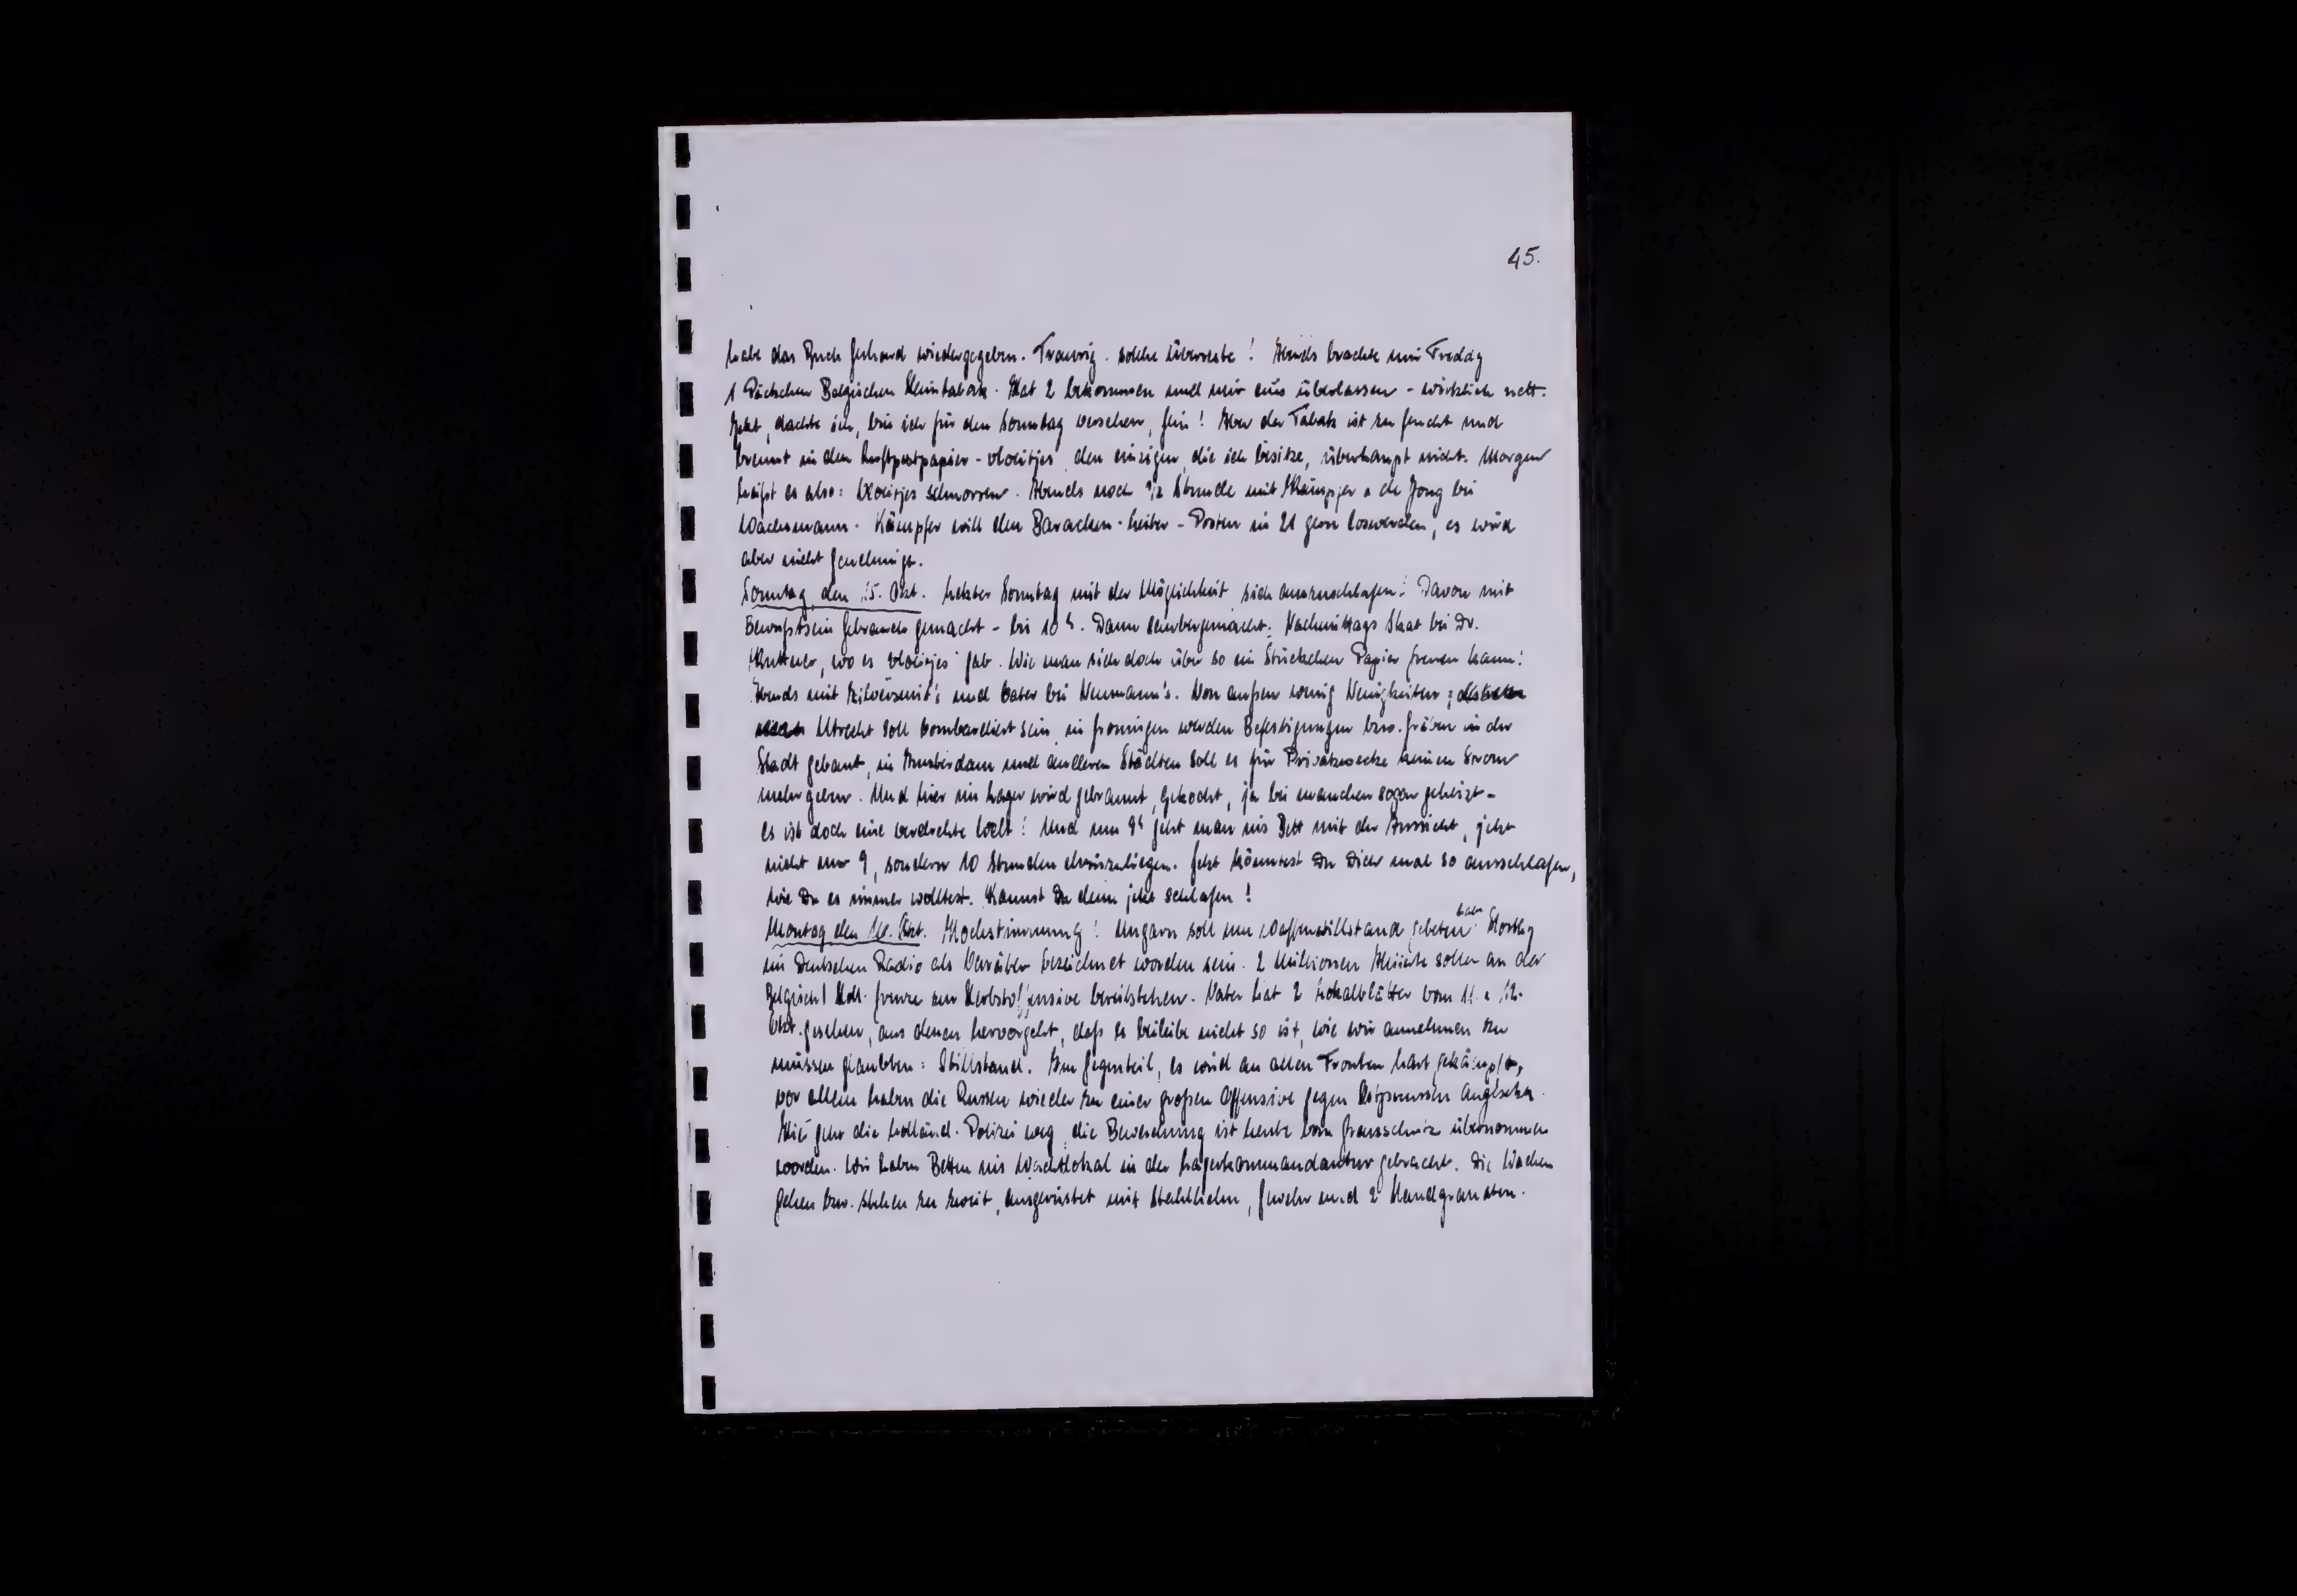 45.
habe das Buch Gerhard wiedergegeben. Traurig. solche Überreste! Abends brachte mir Freddy
1 Päckchen Belgischen Feintabak. Hat 2 bekommen und mir eins überlassen - wirklich nett.
Jetzt, dachte ich, bin ich für den Sonntag versehen, fein! Aber der Tabak ist zu feucht und
brennt in den Luftpostpapier-vloeitjes, den einzigen, die ich besitze, überhaupt nicht. Morgen
heißt es also: Vloeitjes schnorren. Abends noch 1/2 Stunde mit Kämpfer u de Jong bei
Wachsmann. Kämpfer will den Baracken-Leiter-Posten in 21 gern loswerden, es wird
aber nicht genehmigt.
Sonntag, den 15. Okt. Letzter Sonntag mit der Möglichkeit, sich auszuschlafen! Davon mit
Bewußtsein Gebrauch gemacht - bis 10 h. Dann saubergemacht. Nachmittags Skat bei Dr.
wo es "vloeitjes" gab. Wie man sich doch über so ein Stückchen Papier freuen kann!
Abends mit und Vater bei Neumann's. Von außen wenig Neuigkeiten;
Utrecht soll bombardiert sein, in Groningen werden Befestigungen bzw. Gräben in der
Stadt gebaut, in Amsterdam und anderen Städten soll es für Privatzwecke keinen Strom
mehr geben. Und hier im Lager wird gebrannt, gekocht, ja bei manchen sogar geheizt -
es ist doch eine verdrehte Welt! Und um 9 h geht man ins Bett mit der Aussicht, jetzt
nicht nur 9, sondern 10 Stunden drinzuliegen. Jetzt könntest Du Dich mal so ausschlafen,
wie Du es immer wolltest. Kannst Du denn jetzt schlafen!
Montag den 16. Okt. Hochstimmung! Ungarn soll um Waffenstillstand gebeten haben. Horthy
im Deutschen Radio als Verräter bezeichnet worden sein. 2 Millionen Alliierte sollen an der
Belgisch/Holl. Grenze zur Herbstoffensive bereitstehen. Vater hat 2 Lokalblätter vom 11. u 12.
Okt. gesehen, aus denen hervorgeht, daß es beileibe nicht so ist, wie wir annehmen zu
müssen glaubten: Stillstand. Im Gegenteil, es wird an allen Fronten hart gekämpft,
vor allem haben die Russen wieder zu einer großen Offensive gegen Ostpreussen angesetzt.
Hier geht die holländ. Polizei weg, die Bewachung ist heute vom Grenzschutz übernommen
worden. Wir haben Betten ins Wachtlokal in der Lagerkommandantur gebracht. Die Wachen
gehen bzw. stehen zu zweit, ausgerüstet mit Stahlhelm, Gewehr und 2 Handgranaten.